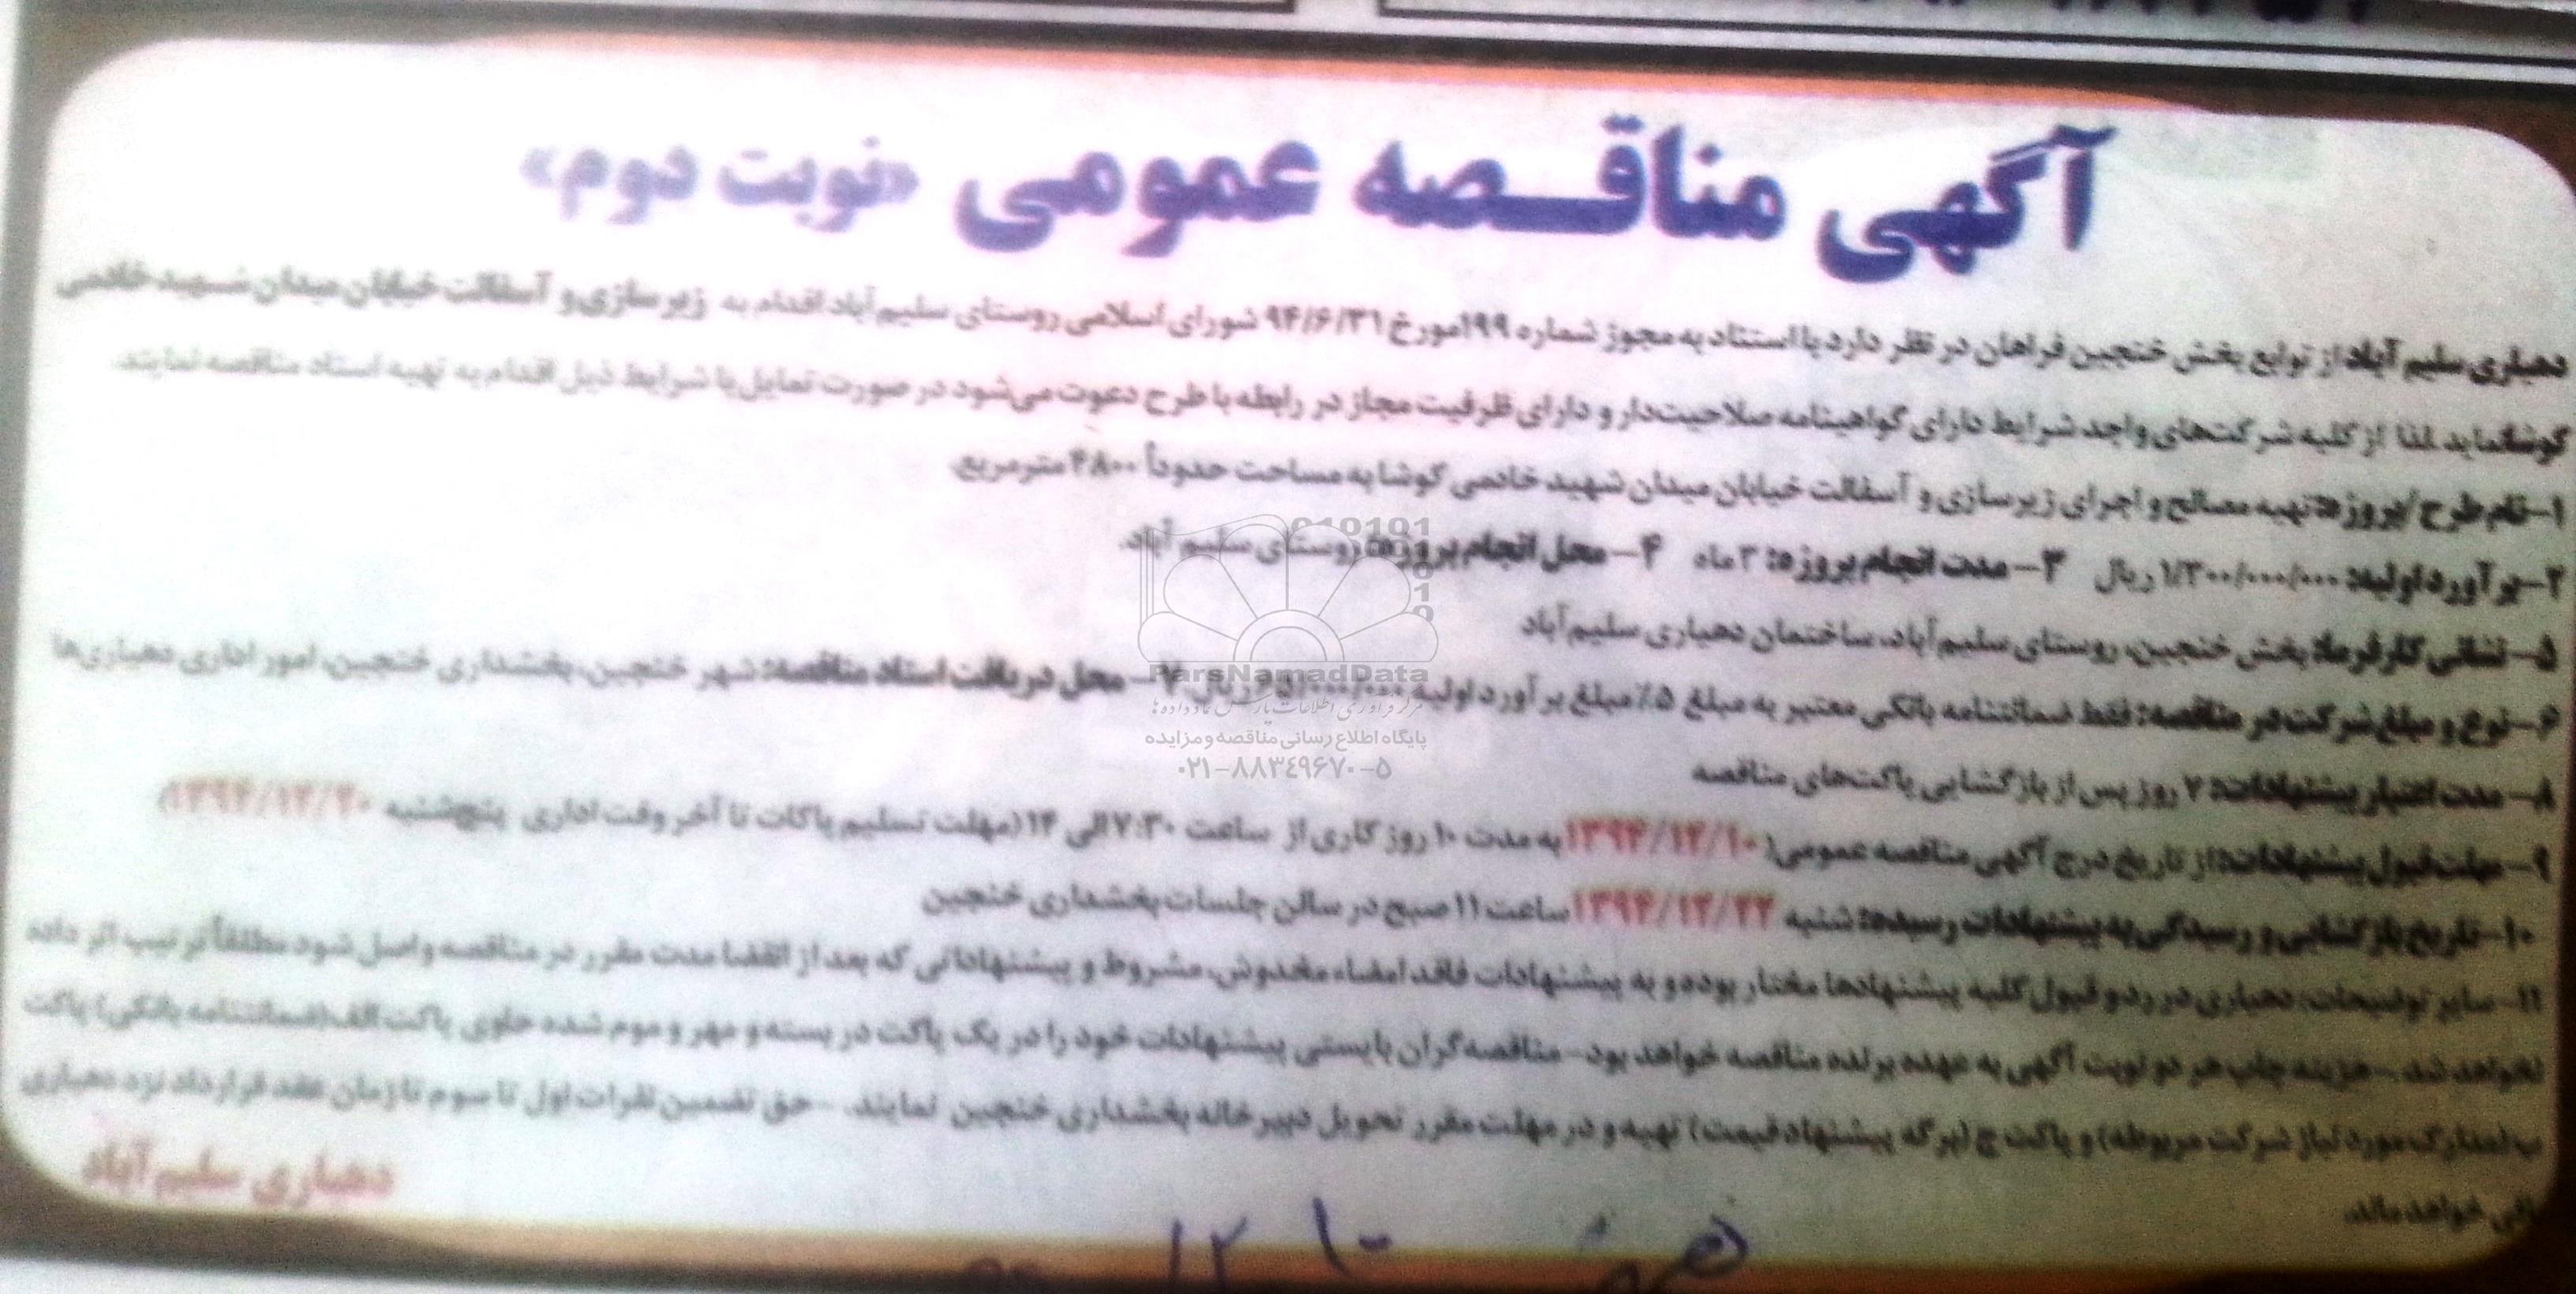 آگهی مناقصه عمومی «نوبت دوم»
دهیاری سلیم آباد از توابع بخش خنجین فراهان در نظر دارد با استناد به مجوز شماره ۱۹۹ مورخ ۹۴/۶/۳۱ شورای اسلامی روستای سلیم آباد اقدام به زیرسازی و آسفالت خیابان میدان شهید خادمی
گوشا نماید. لذا از کلیه شرکت‌های واجد شرایط دارای گواهینامه صلاحیت‌دار و دارای ظرفیت مجاز در رابطه با طرح دعوت می‌شود در صورت تمایل با شرایط ذیل اقدام به تهیه اسناد مناقصه نمایند.
۱- نام طرح/پروژه: تهیه مصالح و اجرای زیرسازی و آسفالت خیابان میدان شهید خادمی گوشا به مساحت حدوداً ۴۸۰۰ مترمربع.
۲- برآورد اولیه: ۱/۳۰۰/۰۰۰/۰۰۰ ریال ۳- مدت انجام پروژه: ۳ ماه ۴- محل انجام پروژه: روستای سلیم آباد.
۵- نشانی کارفرما: بخش خنجین، روستای سلیم‌آباد، ساختمان دهیاری سلیم‌آباد
۶- نوع و مبلغ شرکت در مناقصه: فقط ضمانتنامه بانکی معتبر به مبلغ ۵٪ مبلغ برآورد اولیه ریال ۷- محل دریافت اسناد مناقصه: شهر خنجین، بخشداری خنجین، امور اداری دهیاری‌ها
۸- مدت اعتبار پیشنهادات: ۷ روز پس از بازگشایی پاکت‌های مناقصه
۹- مهلت قبول پیشنهادات: از تاریخ درج آگهی مناقصه عمومی( ۱۳۹۴/۱۲/۱۰ به مدت ۱۰ روز کاری از ساعت ۷:۳۰ الی ۱۴ (مهلت تسلیم پاکات تا آخر وقت اداری پنج‌شنبه ۱۳۹۴/۱۲/۲۰)
۱۰- تاریخ بازگشایی و رسیدگی به پیشنهادات رسیده: شنبه ۱۳۹۴/۱۲/۲۲ ساعت ۱۱ صبح در سالن جلسات بخشداری خنجین
۱۱- سایر توضیحات: دهیاری در رد و قبول کلیه پیشنهادها مختار بوده و به پیشنهادات فاقد امضاء مخدوش، مشروط و پیشنهاداتی که بعد از انقضا مدت مقرر در مناقصه واصل شود مطلقاً ترتیب اثر داده
نخواهد شد. -هزینه چاپ هر دو نوبت آگهی به عهده برنده مناقصه خواهد بود- مناقصه‌گران بایستی پیشنهادات خود را در یک پاکت در بسته و مهر و موم شده حاوی پاکت الف(ضمانتنامه بانکی) پاکت
ب (مدارک مورد نیاز شرکت مربوطه) و پاکت ج (برگه پیشنهاد قیمت) تهیه و در مهلت مقرر تحویل دبیرخانه بخشداری خنجین نمایند. -حق تضمین نفرات اول تا سوم تا زمان عقد قرارداد نزد دهیاری
باقی خواهد ماند.
دهیاری سلیم آباد
ParsNamadData
مرکز فرآوری اطلاعات پارس نماد داده‌ها
پایگاه اطلاع رسانی مناقصه و مزایده
۰۲۱-۸۸۳۴۹۶۷۰-۵